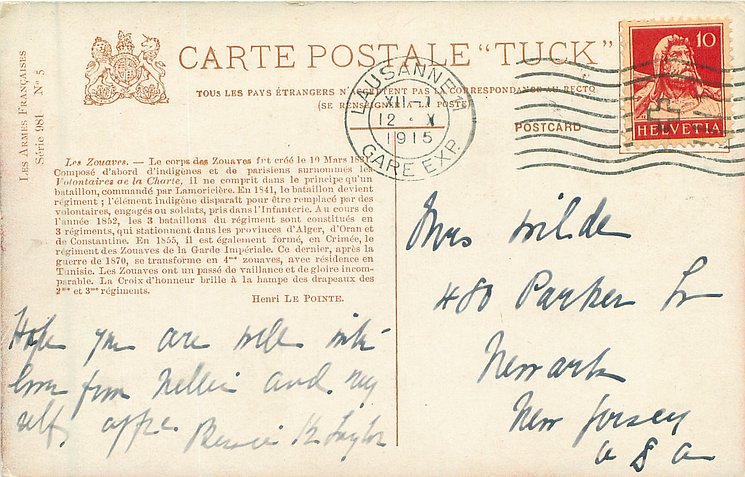 LES ARMES FRANÇAISES
Série 981 N° 5
CARTE POSTALE “TUCK”
TOUS LES PAYS ÉTRANGERS N'ADMETTENT PAS LA CORRESPONDANCE AU RECTO
(SE RENSEIGNER A LA POSTE)
POSTCARD
LAUSANNE
XII-1
12 · X
1915
GARE EXP.
10
HELVETIA
Les Zouaves. — Le corps des Zouaves fut créé le 10 Mars
Composé d'abord d'indigènes et de parisiens surnommés les
Volontaires de la Charte, il ne comprit dans le principe qu'un
bataillon, commandé par Lamoricière. En 1841, le bataillon devient
régiment ; l'élément indigène disparaît pour être remplacé par des
volontaires, engagés ou soldats, pris dans l'Infanterie. Au cours de
l'année 1852, les 3 bataillons du régiment sont constitués en
3 régiments, qui stationnent dans les provinces d'Alger, d'Oran et
de Constantine. En 1855, il est également formé, en Crimée, le
régiment des Zouaves de la Garde Impériale. Ce dernier, après la
guerre de 1870, se transforme en 4me zouaves, avec résidence en
Tunisie. Les Zouaves ont un passé de vaillance et de gloire incom-
parable. La Croix d'honneur brille à la hampe des drapeaux des
2me et 3me régiments.
Henri LE POINTE.
Hope you are well with
love from Nellie and my
self. affec. Bessie K Taylor
Mrs Wilde
480 Parker St
Newark
New Jersey
U S A